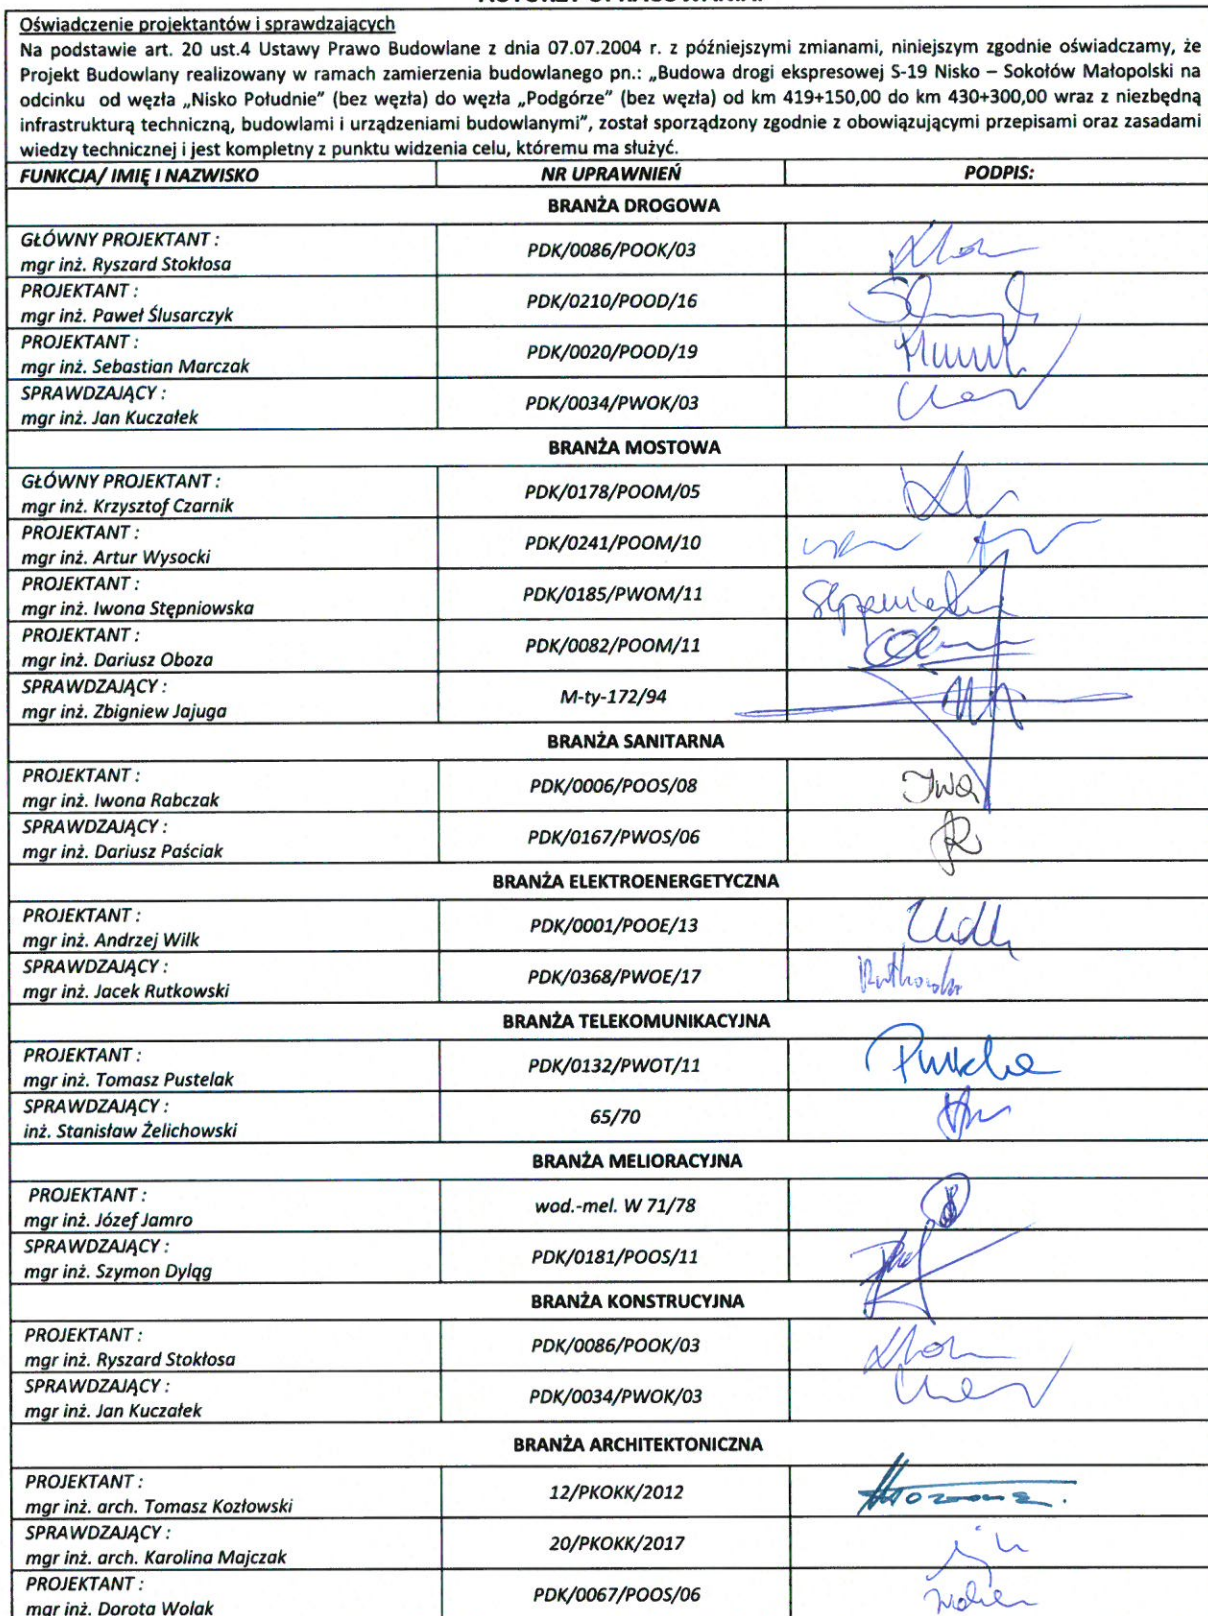 Oświadczenie projektantów i sprawdzających
Na podstawie art. 20 ust.4 Ustawy Prawo Budowlane z dnia 07.07.2004 r. z późniejszymi zmianami, niniejszym zgodnie oświadczamy, że
Projekt Budowlany realizowany w ramach zamierzenia budowlanego pn.: „Budowa drogi ekspresowej S-19 Nisko – Sokołów Małopolski na
odcinku od węzła „Nisko Południe" (bez węzła) do węzła „Podgórze" (bez węzła) od km 419+150,00 do km 430+300,00 wraz z niezbędną
infrastrukturą techniczną, budowlami i urządzeniami budowlanymi", został sporządzony zgodnie z obowiązującymi przepisami oraz zasadami
wiedzy technicznej i jest kompletny z punktu widzenia celu, któremu ma służyć.
FUNKCJA/ IMIĘ I NAZWISKO NR UPRAWNIEŃ PODPIS:
BRANŻA DROGOWA
GŁÓWNY PROJEKTANT :
mgr inż. Ryszard Stokłosa PDK/0086/POOK/03
PROJEKTANT :
mgr inż. Paweł Ślusarczyk PDK/0210/POOD/16
PROJEKTANT :
mgr inż. Sebastian Marczak PDK/0020/POOD/19
SPRAWDZAJĄCY :
mgr inż. Jan Kuczałek PDK/0034/PWOK/03
BRANŻA MOSTOWA
GŁÓWNY PROJEKTANT :
mgr inż. Krzysztof Czarnik PDK/0178/POOM/05
PROJEKTANT :
mgr inż. Artur Wysocki PDK/0241/POOM/10
PROJEKTANT :
mgr inż. Iwona Stępniowska PDK/0185/PWOM/11
PROJEKTANT :
mgr inż. Dariusz Oboza PDK/0082/POOM/11
SPRAWDZAJĄCY :
mgr inż. Zbigniew Jajuga M-ty-172/94
BRANŻA SANITARNA
PROJEKTANT :
mgr inż. Iwona Rabczak PDK/0006/POOS/08
SPRAWDZAJĄCY :
mgr inż. Dariusz Paściak PDK/0167/PWOS/06
BRANŻA ELEKTROENERGETYCZNA
PROJEKTANT :
mgr inż. Andrzej Wilk PDK/0001/POOE/13
SPRAWDZAJĄCY :
mgr inż. Jacek Rutkowski PDK/0368/PWOE/17
BRANŻA TELEKOMUNIKACYJNA
PROJEKTANT :
mgr inż. Tomasz Pustelak PDK/0132/PWOT/11
SPRAWDZAJĄCY :
inż. Stanisław Żelichowski 65/70
BRANŻA MELIORACYJNA
PROJEKTANT :
mgr inż. Józef Jamro wod.-mel. W 71/78
SPRAWDZAJĄCY :
mgr inż. Szymon Dyląg PDK/0181/POOS/11
BRANŻA KONSTRUCYJNA
PROJEKTANT :
mgr inż. Ryszard Stokłosa PDK/0086/POOK/03
SPRAWDZAJĄCY :
mgr inż. Jan Kuczałek PDK/0034/PWOK/03
BRANŻA ARCHITEKTONICZNA
PROJEKTANT :
mgr inż. arch. Tomasz Kozłowski 12/PKOKK/2012
SPRAWDZAJĄCY :
mgr inż. arch. Karolina Majczak 20/PKOKK/2017
PROJEKTANT :
mgr inż. Dorota Wolak PDK/0067/POOS/06